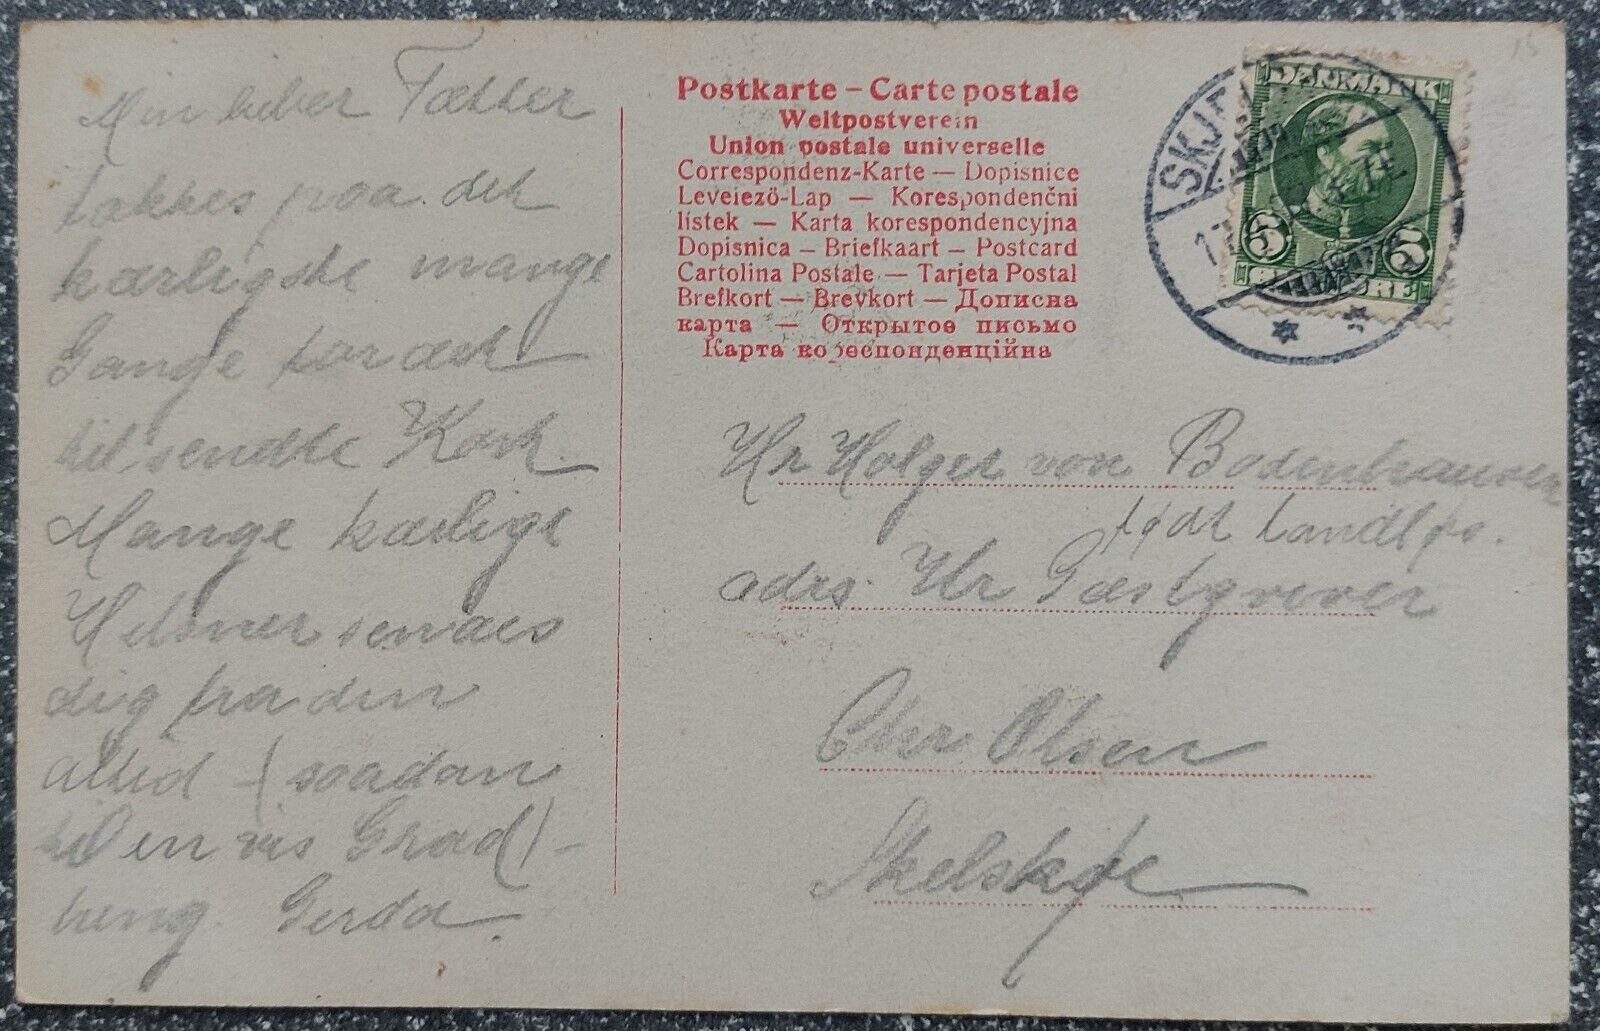 Min lieber Fætter
takkes paa det
kærligste mange
Gange for det
tilsendte Kort.
Mange kærlige
Hilsner sendes
dig fra den
altid (saadan
til en vis Grad) –
Gerda.
Postkarte – Carte postale
Weltpostverein
Union postale universelle
Correspondenz-Karte — Dopisnice
Levelező-Lap — Korespondenční
lístek — Karta korespondencyjna
Dopisnica — Briefkaart — Postcard
Cartolina Postale — Tarjeta Postal
Brefkort — Brevkort — Дописна
карта — Открытое письмо
Карта кореспонденційна
DANMARK
5 5
ØRE
SKJE
Hr Holger von Bodenhausen
født Landløs.
adrs. Hr Gæstgiver
Chr Olsen
Skelskør